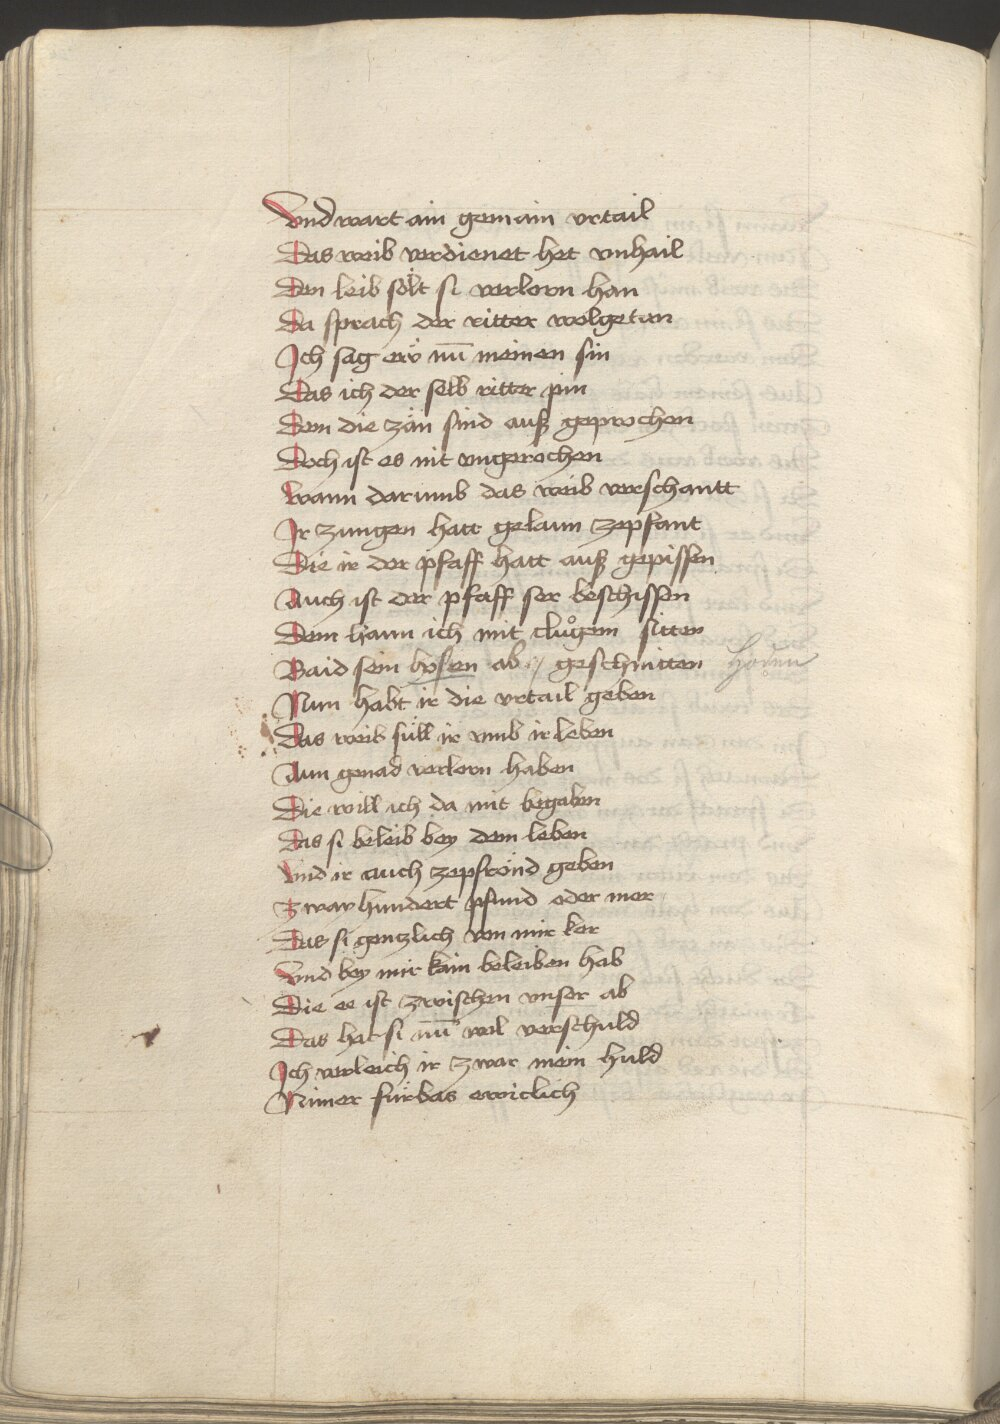 Vnd wart ain gemain vrtail
Das weib verdienet het vnhail
Den leib sölt si verlorn han
Da sprach der ritter wolgetan
Ich sag ew nu̅ meinen sin
Das ich der selb ritter pin
Dem die zän sind auß geprochen
Doch ist es nit vngerochen
Wann darumb das weib verschantt
Ir zungen hatt gelaun zepfant
Die ir der pfaff hatt auß gepissen
Auch ist der pfaff ser beschissen
Dem hann ich mit clůgem sitten
Baid sein hosen ab geschnitten hoden
Nun habt ir die vrtail geben
Das weib süll ir vmb ir leben
Aun genad verlorn haben
Die will ich da mit begaben
Das si beleib bey dem leben
Vnd ir auch zepfrönd geben
Zway hundert pfund oder mer
Das si gentzlich von mir ker
Vnd bey mir kain beleiben hab
Die ee ist zwischen vnser ab
Das hat si nu̅ wol verschuld
Ich verleich ir zwar mein huld
Nimer fürbas ewiclich